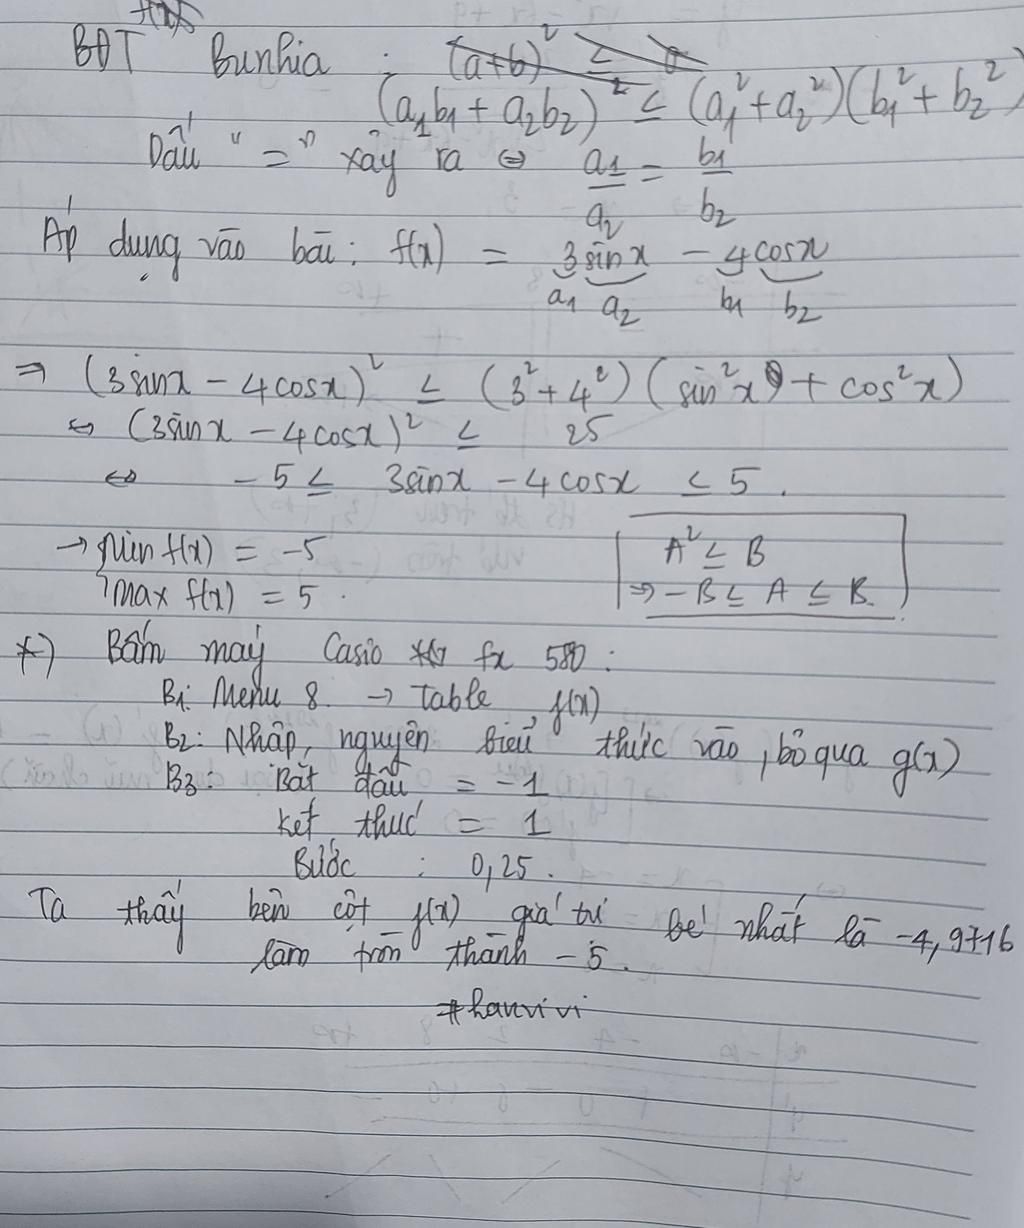 BĐT Bunhia : (a+b)² ≤
(a₁b₁ + a₂b₂)² ≤ (a₁² + a₂²)(b₁² + b₂²)
Dấu "=" xảy ra ⇔ a₁/a₂ = b₁/b₂
Áp dụng vào bài: f(x) = 3sinx - 4cosx
a₁ a₂ b₁ b₂
⇒ (3sinx - 4cosx)² ≤ (3² + 4²)(sin²x + cos²x)
⇔ (3sinx - 4cosx)² ≤ 25
⇔ -5 ≤ 3sinx - 4cosx ≤ 5.
→ Min f(x) = -5
Max f(x) = 5.
A² ≤ B
⇒ -B ≤ A ≤ B.
*) Bấm máy Casio fx 580:
B1: Menu 8. → Table f(x)
B2: Nhập nguyên biểu thức vào, bỏ qua g(x)
B3: Bắt đầu = -1
Kết thúc = 1
Bước : 0,25.
Ta thấy bên cột f(x) giá trị bé nhất là -4,9716
làm tròn thành -5.
#hanvivi